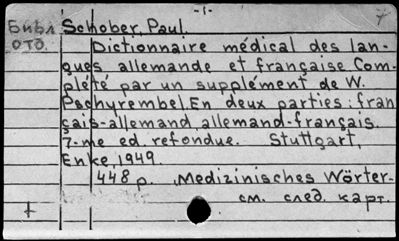 -1-
Библ Schober, Paul
ОТО. Dictionnaire médical des lan-
gues allemande et française Com-
plété par un supplément de W.
Pschyrembel. En deux parties: fran
çais-allemand, allemand-français.
7-me ed. refondue. Stuttgart,
Enke, 1949.
448 p. Medizinisches Wörter-
см. след. карт.